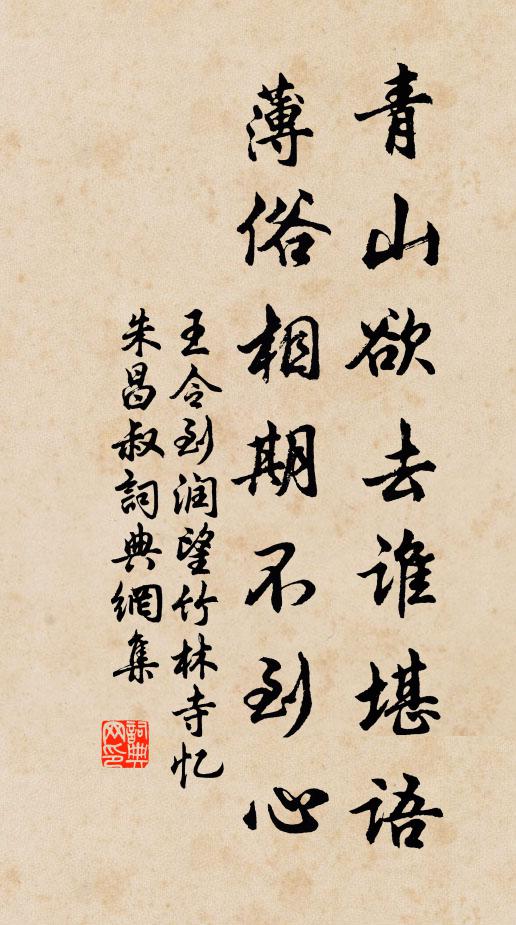 青山欲去谁堪语
薄俗相期不到心
王令到润望竹林寺忆
朱昌叔詞典網集
詞典网印